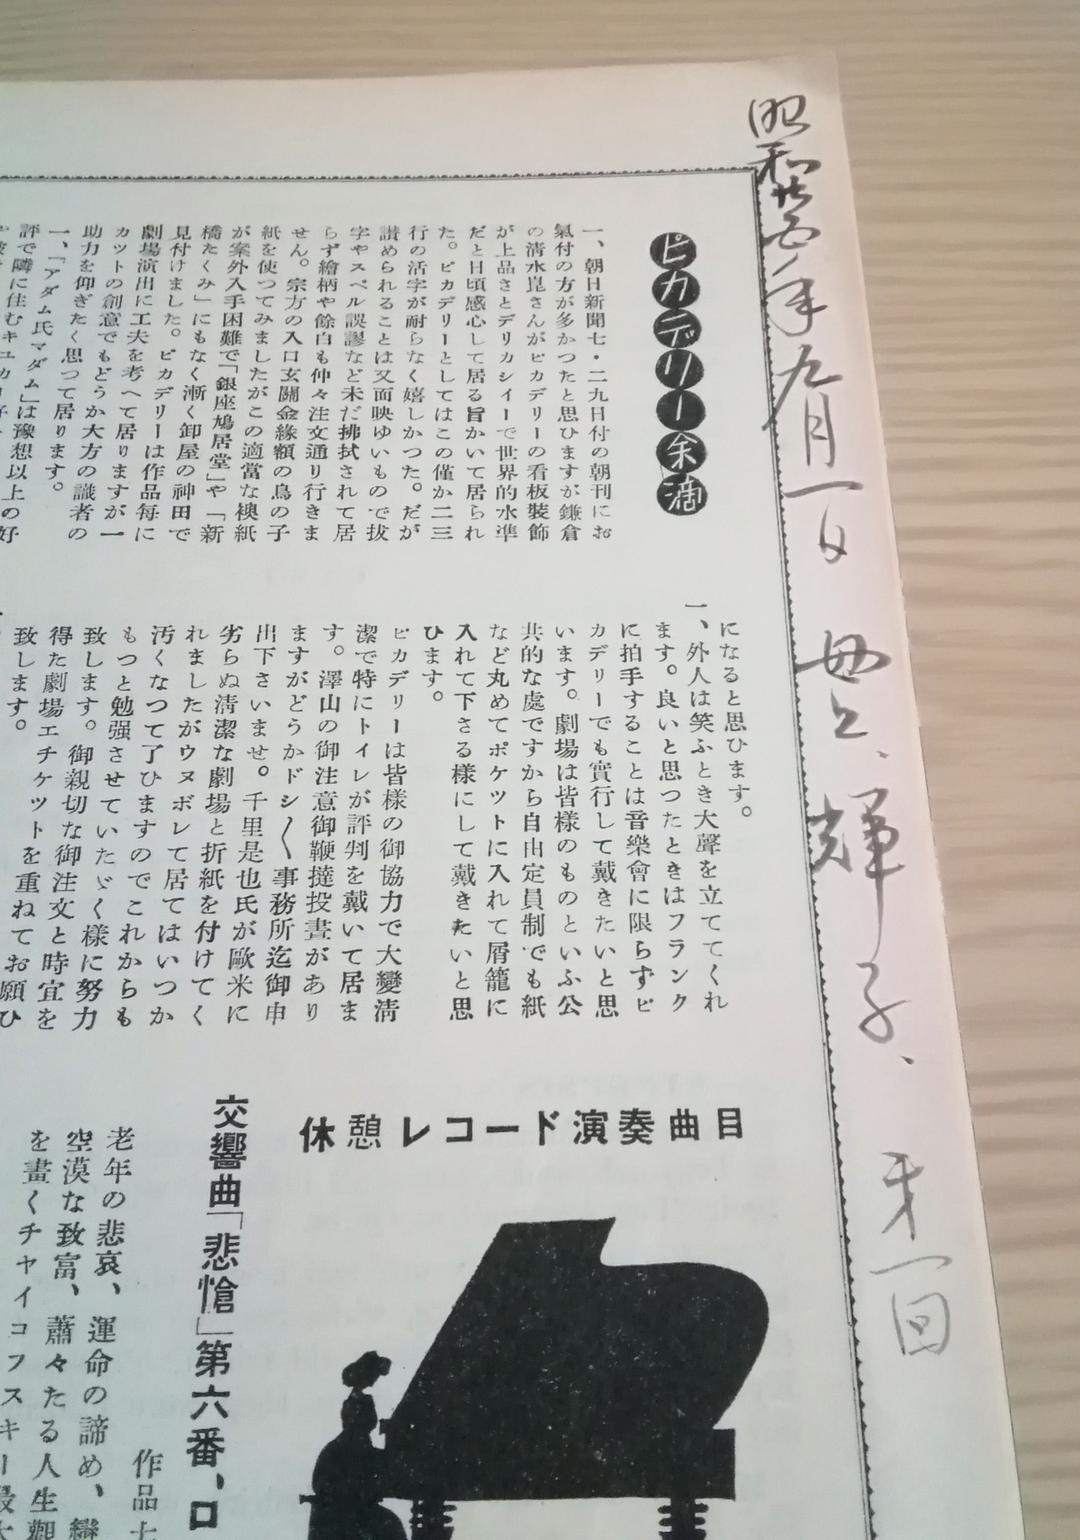 昭和廿五年九月一日 母と、輝子、 才一回
ピカデリー余滴
一、朝日新聞七・二九日付の朝刊にお
氣付の方が多かつたと思ひますが鎌倉
の清水崑さんがピカデリーの看板裝飾
が上品さとデリカシイーで世界的水準
だと日頃感心して居る旨かいて居られ
た。ピカデリーとしてはこの僅か二三
行の活字が耐らなく嬉しかつた。だが
讃められることは又面映ゆいもので拔
字やスペル誤謬など未だ拂拭されて居
らず繪柄や餘白も仲々注文通り行きま
せん。宗方の入口玄關金緣額の鳥の子
紙を使つてみましたがこの適當な襖紙
が案外入手困難で「銀座鳩居堂」や「新
橋たくみ」にもなく漸く卸屋の神田で
見付けました。ピカデリーは作品每に
劇場演出に工夫を考へて居りますが一
カットの創意でもどうか大方の識者の
助力を仰ぎたく思つて居ります。
一、「アダム氏マダム」は豫想以上の好
評で隣に住むキュ
になると思ひます。
一、外人は笑ふとき大聲を立ててくれ
ます。良いと思つたときはフランク
に拍手することは音樂會に限らずピ
カデリーでも實行して戴きたいと思
います。劇場は皆様のものといふ公
共的な處ですから自由定員制でも紙
など丸めてポケットに入れて屑籠に
入れて下さる様にして戴きたいと思
ひます。
ピカデリーは皆様の御協力で大變淸
潔で特にトイレが評判を戴いて居ま
す。澤山の御注意御鞭撻投書があり
ますがどうかドシ〱事務所迄御申
出下さいませ。千里是也氏が歐米に
劣らぬ淸潔な劇場と折紙を付けてく
れましたがウヌボレて居てはいつか
汚くなつて了ひますのでこれからも
もつと勉强させていたゞく様に努力
致します。御親切な御注文と時宜を
得た劇場エチケットを重ねてお願ひ
致します。
休憩レコード演奏曲目
交響曲「悲愴」第六番、ロ
作品七
老年の悲哀、運命の諦め、
空漠な致富、蕭々たる人生觀
を畫くチャイコフスキー最大